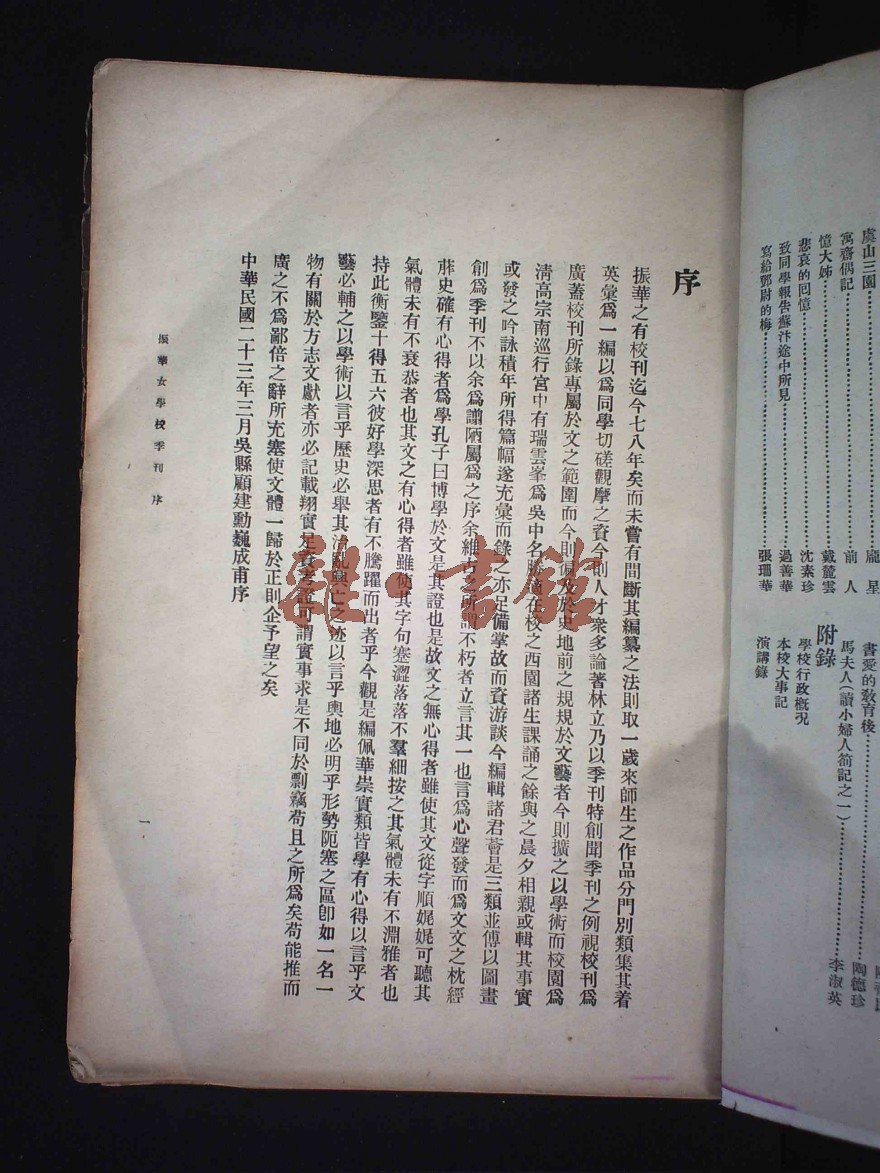 虞山三園 龐星
寓齋偶記 前人
憶大姊 戴麓雲
悲哀的回憶 沈素珍
致同學報告蘇汴途中所見 過善華
寫給鄧尉的梅 張珊華
書愛的教育後 陶德珍
馬夫人(讀小婦人劄記之一) 李淑英
附錄
學校行政概况
本校大事記
演講錄
序
振華之有校刊迄今七八年矣而未嘗有間斷其編纂之法則取一歲來師生之作品分門別類集其着
英彙爲一編以爲同學切磋觀摩之資今則人才衆多論著林立乃以季刊特創聞季刊之例視校刊爲
廣蓋校刊所錄專屬於文之範圍而今則徧及於史地前之規規於文藝者今則擴之以學術而校園爲
清高宗南巡行宮中有瑞雲峯爲吳中名勝適在校之西園諸生課誦之餘與之晨夕相親或輯其事實
或發之吟詠積年所得篇幅遂充彙而錄之亦足備掌故而資游談今編輯諸君薈是三類並傅以圖畫
創爲季刊不以余爲譾陋屬爲之序余維古之所謂不朽者立言其一也言爲心聲發而爲文文之枕經
葄史確有心得者爲學孔子曰博學於文是其證也是故文之無心得者雖使其文從字順娓娓可聽其
氣體未有不衰恭者也其文之有心得者雖使其字句蹇澀落落不羣細按之其氣體未有不淵雅者也
持此衡鑒十得五六彼好學深思者有不騰躍而出者乎今觀是編佩華崇實類皆學有心得以言乎文
藝必輔之以學術以言乎歷史必舉其治亂興亡之迹以言乎輿地必明乎形勢阨塞之區卽如一名一
物有關於方志文獻者亦必記載翔實足資考證可謂實事求是不同於剽竊苟且之所爲矣苟能推而
廣之不爲鄙倍之辭所充塞使文體一歸於正則企予望之矣
中華民國二十三年三月吳縣顧建勳巍成甫序
振華女學校季刊 序
一
雒口書館